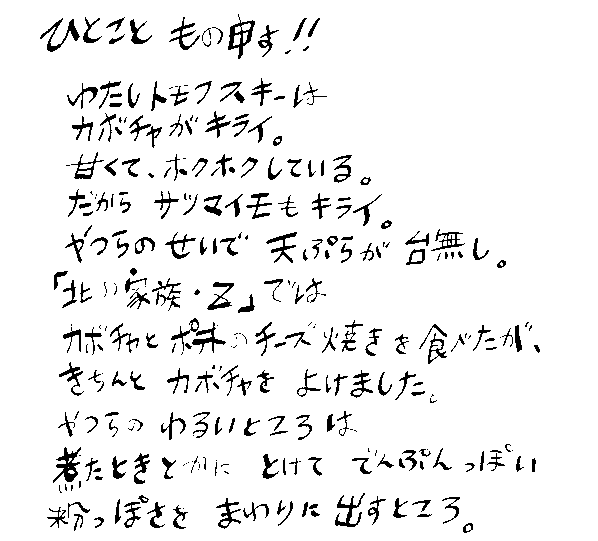 ひとこと もの申す!!
わたしトモフスキーは
カボチャがキライ。
甘くて、ホクホクしている。
だから サツマイモも キライ。
やつらの せいで 天ぷらが 台無し。
「北の家族・Z」では
カボチャと のチーズ焼きを 食べたが、
きちんと カボチャを よけました。
やつらの わるいところは
煮たときとかに とけて でんぷんっぽい
粉っぽさを まわりに 出すところ。